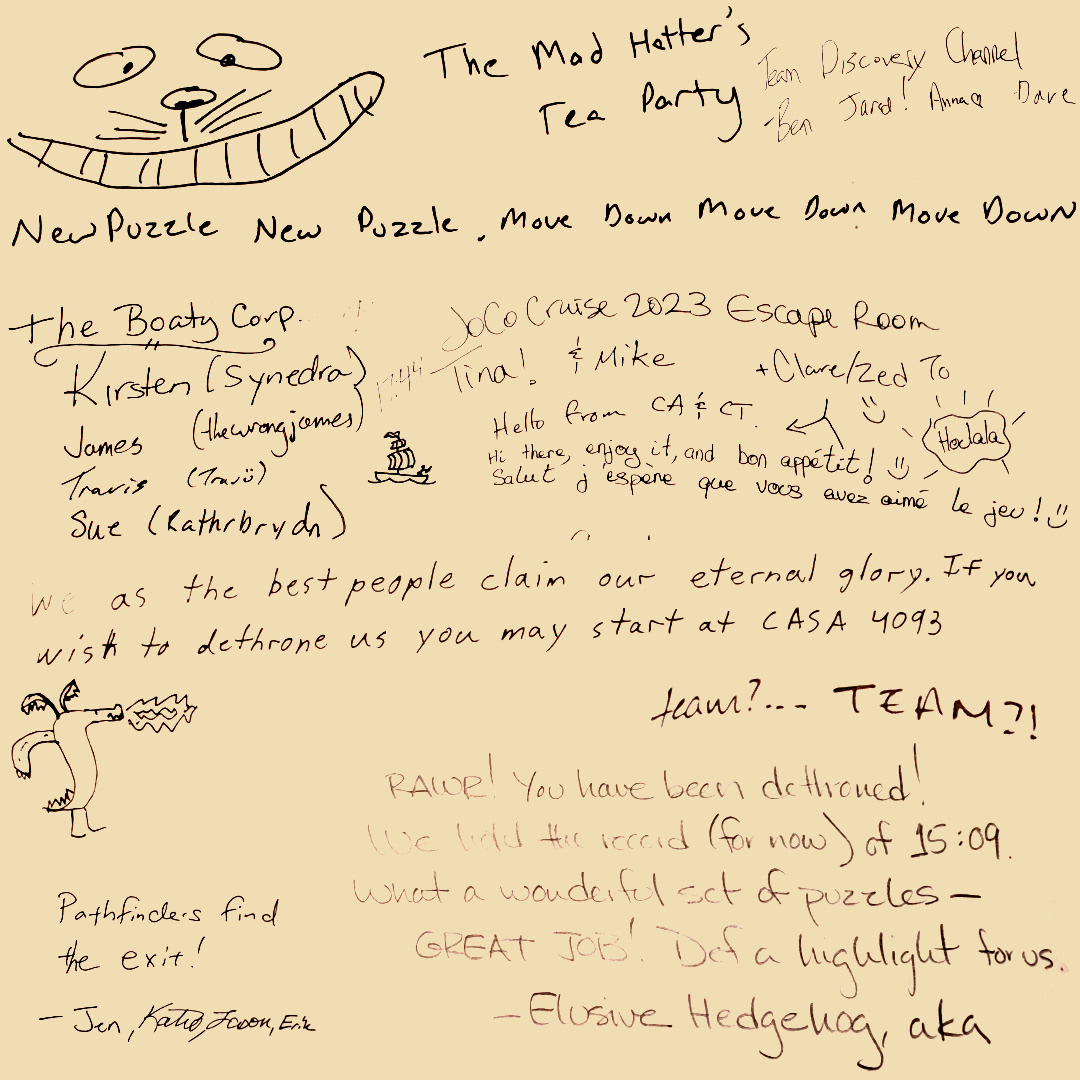 The Mad Hatter's
Tea Party
Team Discovery Channel
-Ben Jared! Anna Dave
New Puzzle New Puzzle, Move Down Move Down Move Down
The Boaty Corp.
Kirsten (Synedra)
James (thewrongjames)
Travis
Sue (Kathrbrydn)
17:44
JoCo Cruise 2023 Escape Room
Tina! & Mike
+Clare/Zed To
Hello from CA & CT
Hi there, enjoy it, and bon appétit!
Salut j'espère que vous avez aimé le jeu!
We as the best people claim our eternal glory. If you
wish to dethrone us you may start at CASA 4093
team?... TEAM?!
RAWR! You have been dethroned!
We hold the record (for now) of 15:09.
What a wonderful set of puzzles —
GREAT JOB! Def a highlight for us.
— Elusive Hedgehog, aka
Pathfinders find
the exit!
— Jen, Katie, Jason, Eric